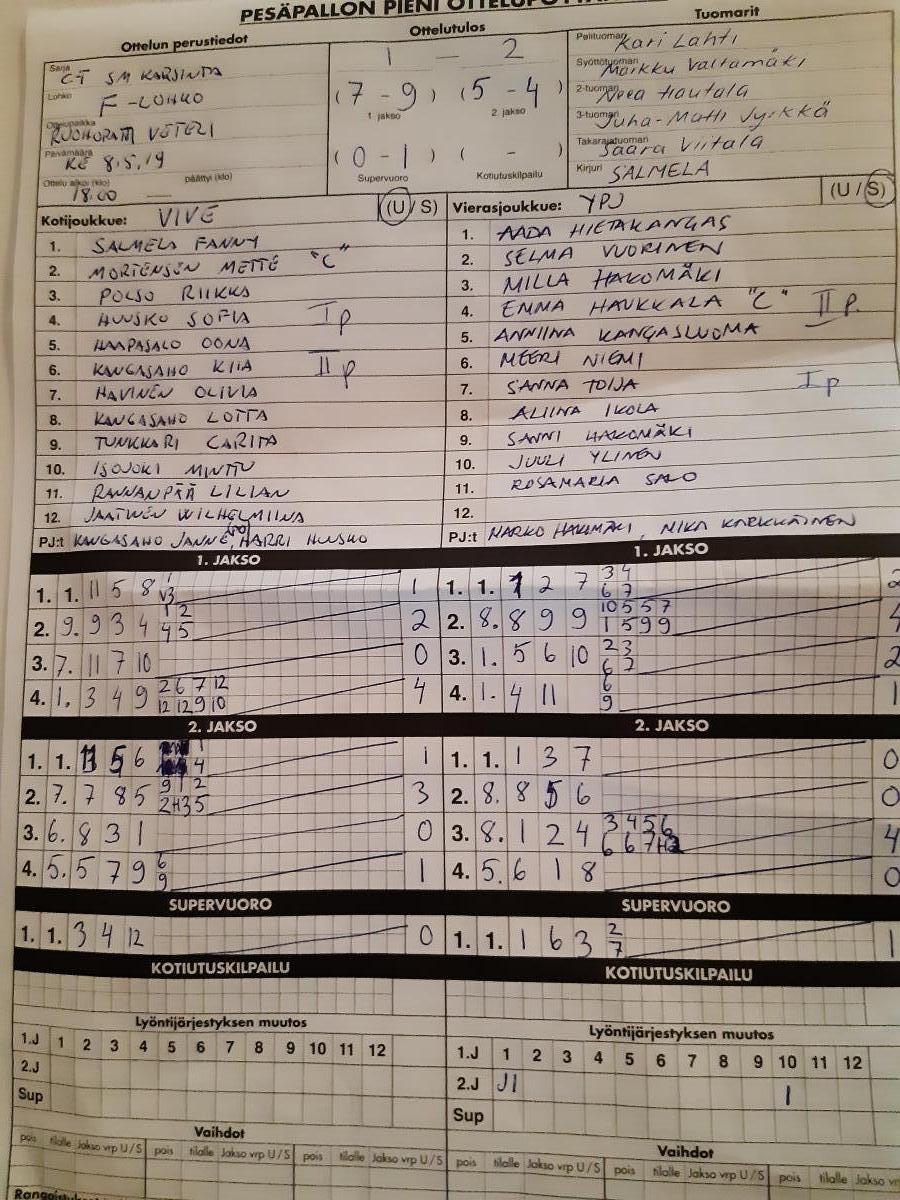 PESÄPALLON PIENI
Ottelun perustiedot
Ottelutulos
Tuomarit
Sarja CT SM KARSINTA
Lohko F-LOHKO
Ottelupaikka VETELI
Päivämäärä KE 8.5.19
Ottelu alkoi (klo) 18.00 päättyi (klo) —
1 — 2
(7 - 9) (5 - 4)
1 jakso 2 jakso
(0 - 1) ( - )
Supervuoro Kotiutuskilpailu
Pelituomari Kari Lahti
Syöttötuomari Markku Valtamäki
2-tuomari Neea Hautala
3-tuomari Juha-Matti Jyrkkä
Takarajatuomari Saara Viitala
Kirjuri SALMELA
Kotijoukkue: VIVE (U/S)
1. SALMELA FANNY
2. MORTENSEN METTE "C"
3. POLSO RIIKKA
4. HUUSKO SOFIA I p
5. HAAPASALO OONA
6. KANGASAHO KIIA II p
7. HAVINEN OLIVIA
8. KANGASAHO LOTTA
9. TUNKKARI CARITA
10. ISOJOKI MINTTU
11. RANNANPÄÄ LILIAN
12. JAATINEN WILHELMIINA
PJ:t KANGASAHO JANNE, HARRI HUUSKO
Vierasjoukkue: YPJ (U/S)
1. AADA HIETAKANGAS
2. SELMA VUORINEN
3. MILLA HAKOMÄKI
4. EMMA HAUKKALA "C" II p.
5. ANNIINA KANGASLUOMA
6. MEERI NIEMI
7. SANNA TOIJA I p
8. ALIINA IKOLA
9. SANNI HAKOMÄKI
10. JUULI YLINEN
11. ROSAMARIA SALO
12.
PJ:t MARKO HAKOMÄKI, MIKA KARKKÄINEN
1. JAKSO
1. 1. 11 5 8 1 v3 1
2. 9. 9 3 4 1 2 4 5 2
3. 7. 11 7 10 0
4. 1. 3 4 9 2 6 7 12 12 12 9 10 4
1. JAKSO
1. 1. 1 2 7 3 4 6 7 2
2. 8. 8 9 9 10 5 5 7 1 5 9 9 4
3. 1. 5 6 10 2 3 6 7 2
4. 1. 4 11 6 9 1
2. JAKSO
1. 1. 11 5 6 1 4 1
2. 7. 7 8 5 9 1 2 2H 3 5 3
3. 6. 8 3 1 0
4. 5. 5 7 9 6 9 1
2. JAKSO
1. 1. 1 3 7 0
2. 8. 8 5 6 0
3. 8. 1 2 4 3 4 5 6 6 6 4
4. 5. 6 1 8 0
SUPERVUORO
1. 1. 3 4 12 0
SUPERVUORO
1. 1. 1 6 3 2 7 1
KOTIUTUSKILPAILU
KOTIUTUSKILPAILU
Lyöntijärjestyksen muutos
1.J 1 2 3 4 5 6 7 8 9 10 11 12
2.J
Sup
Lyöntijärjestyksen muutos
1.J 1 2 3 4 5 6 7 8 9 10 11 12
2.J J1 1
Sup
Vaihdot
pois tilalle Jakso vrp U/S pois tilalle Jakso vrp U/S pois tilalle Jakso vrp U/S
Vaihdot
pois tilalle Jakso vrp U/S pois tilalle Jakso vrp U/S pois tilalle Jakso